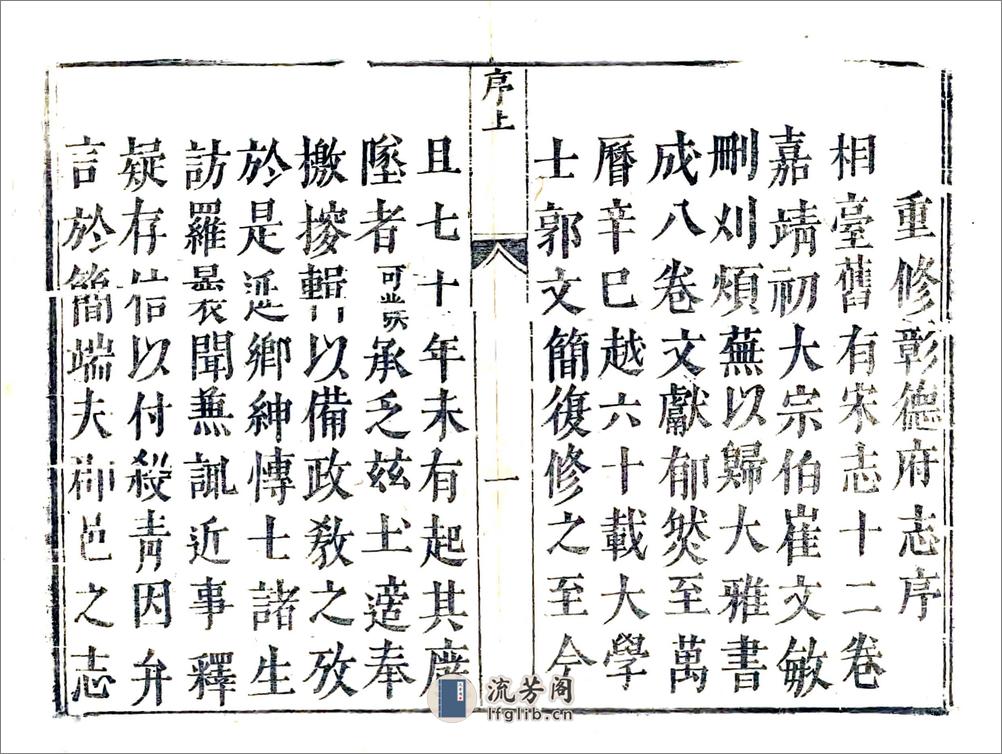 重修彰德府志序
相臺舊有宋志十二卷
嘉靖初大宗伯崔文敏
刪刈煩蕪以歸大雅書
成八卷文獻郁然至萬
曆辛巳越六十載大學
士郭文簡復修之至今
序上
一
且七十年未有起其廢
墜者可承乏兹土適奉
檄搜輯以備政敎之攷
於是延鄉紳博士諸生
訪羅曩聞兼諏近事釋
疑存信以付殺青因弁
言於簡端夫郡邑之志
流芳阁
lfglib.cn